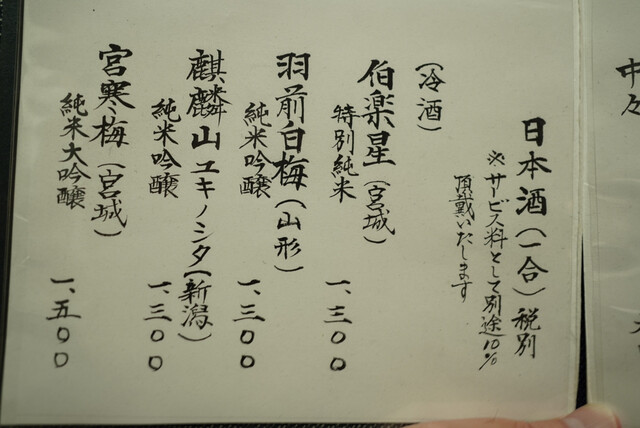 日本酒(一合)税別
※サービス料として別途10%
頂戴いたします
(冷酒)
伯楽星(宮城)
特別純米 一、三〇〇
羽前白梅(山形)
純米吟醸 一、三〇〇
麒麟山ユキノシタ(新潟)
純米吟醸 一、三〇〇
宮寒梅(宮城)
純米大吟醸 一、五〇〇
中々